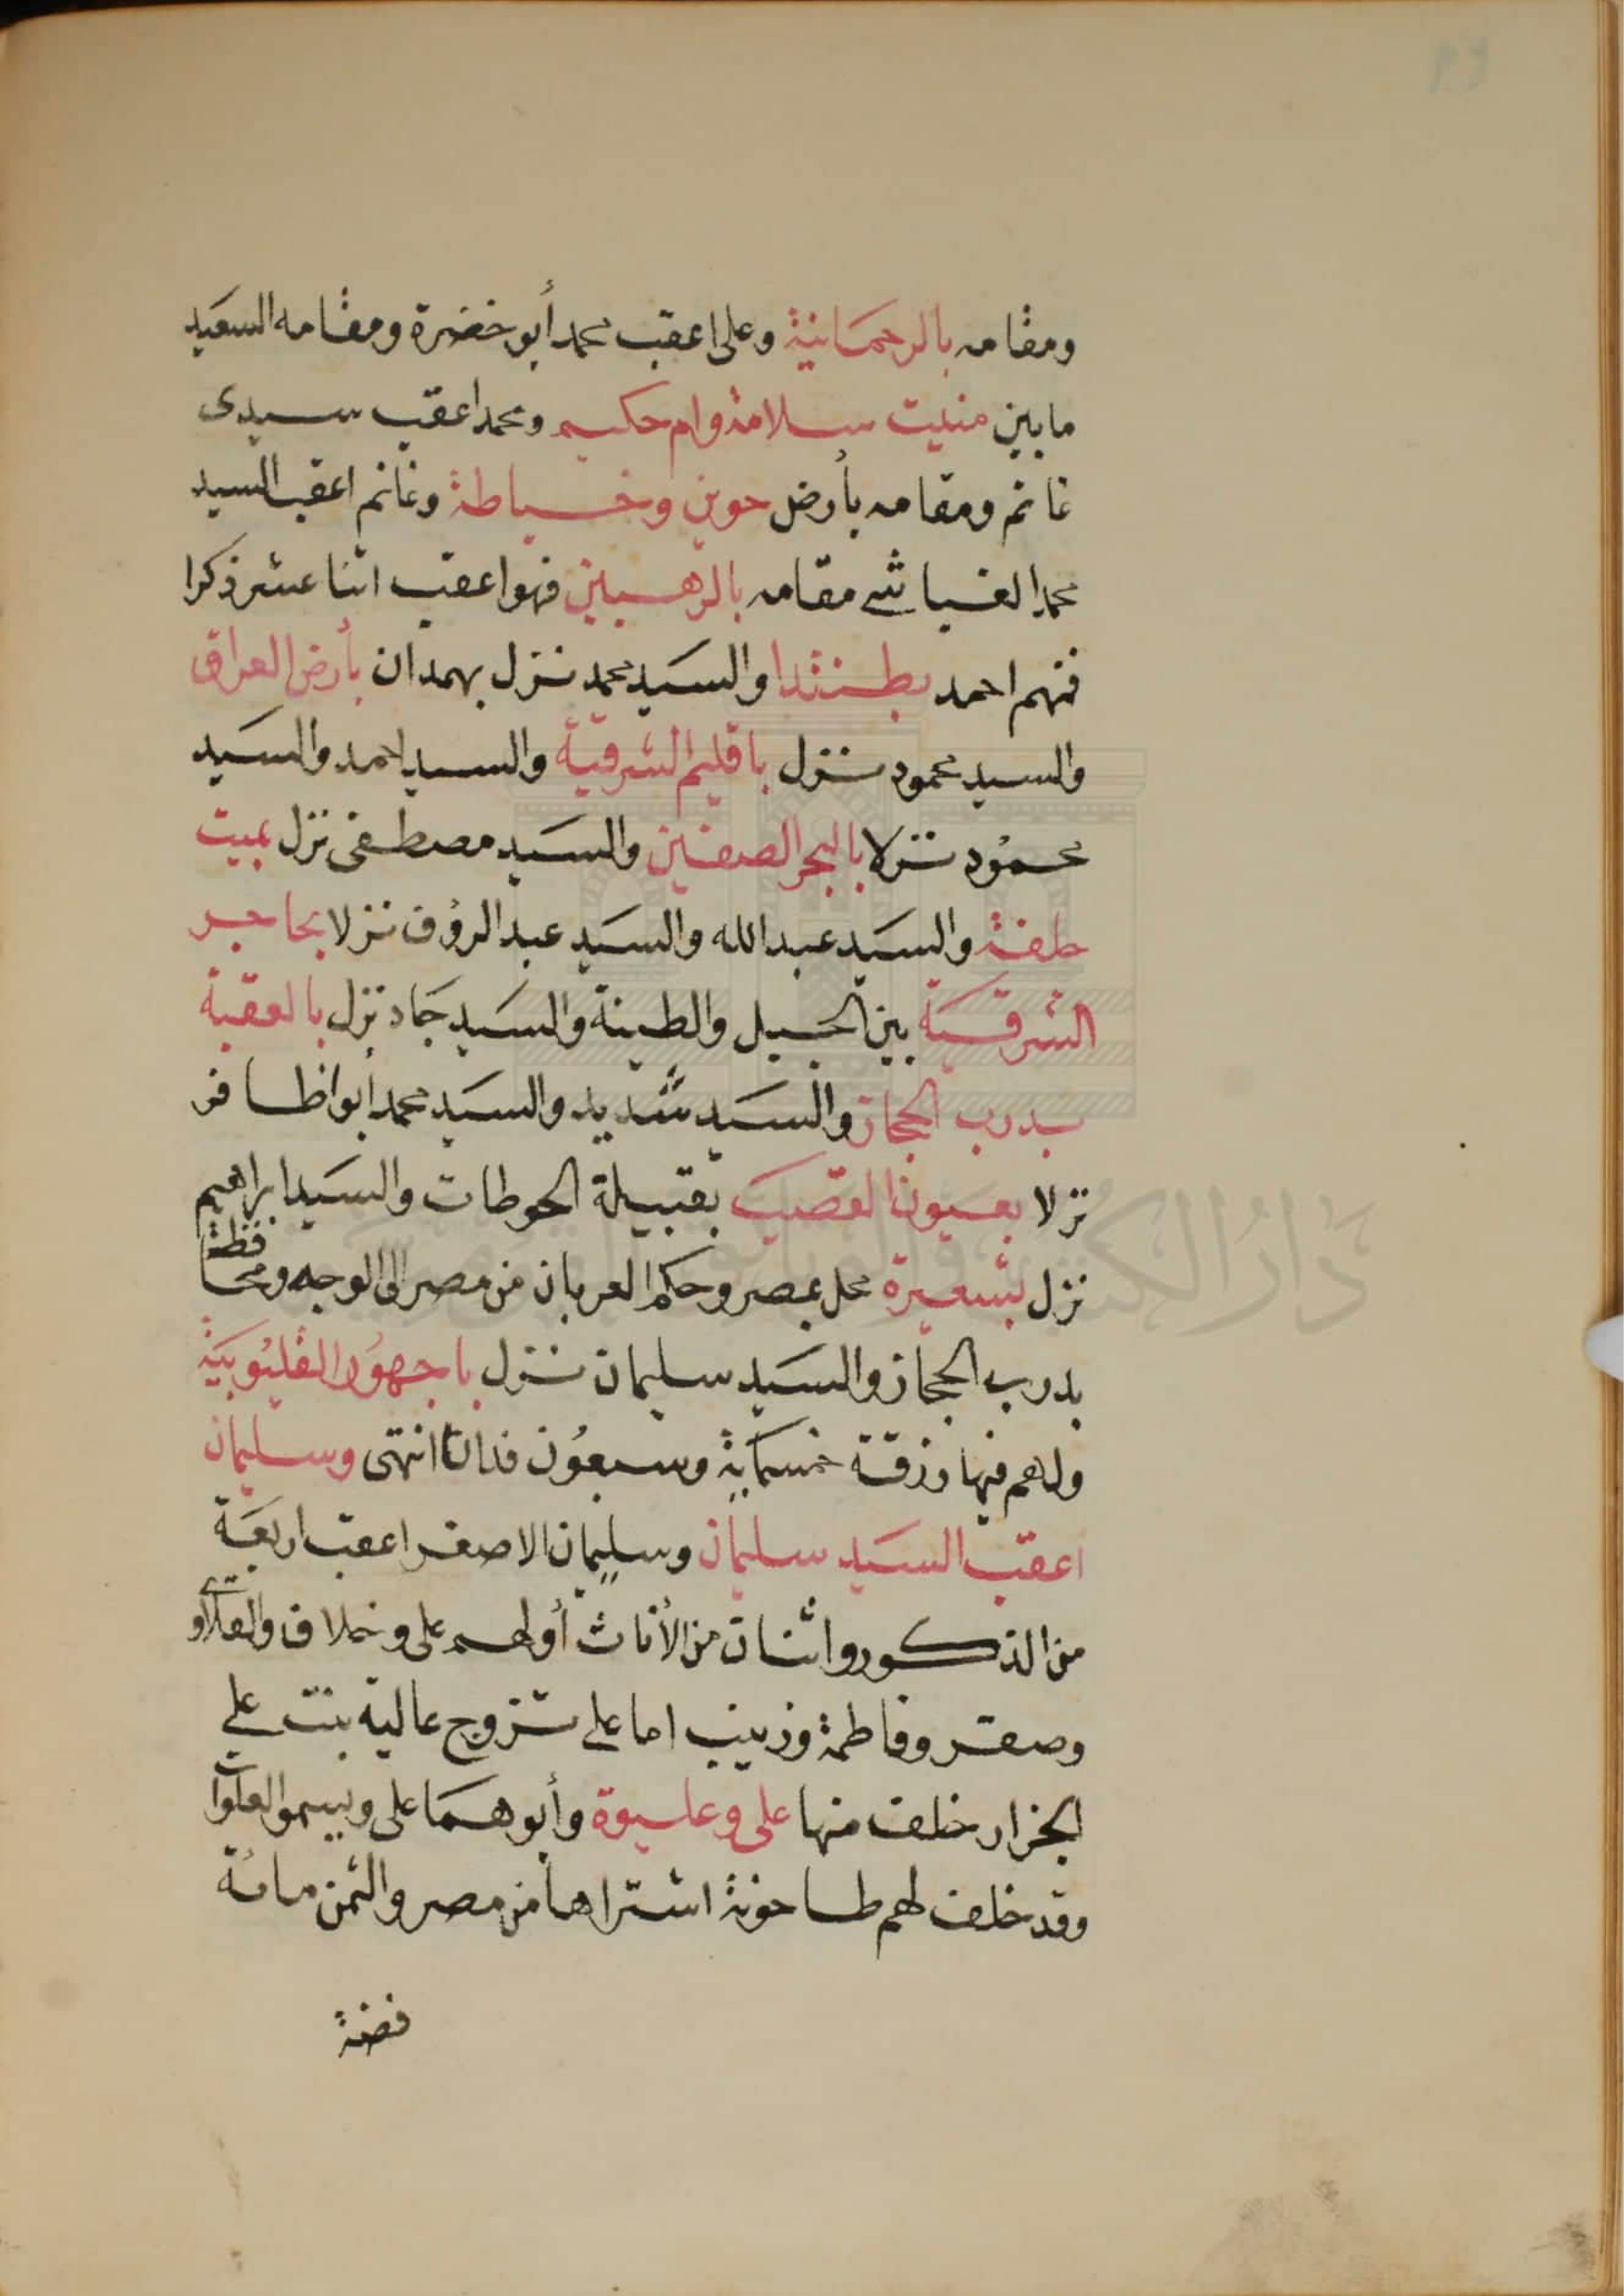 ومقامه بالرحمانية وعلى اعقب محمد أبو خضرة ومقامه السعيد
مابين منيت سلامة وام حكيم ومحمد اعقب سيدى
غانم ومقامه بأرض حوين وخسياطة وغانم اعقب السيد
محمد الغباشى مقامه بالرهبين فهو اعقب اثنا عشر ذكرا
فمنهم احمد بطنتدا والسيد محمد نزل بهمدان بأرض العراق
والسيد محمود نزل باقليم الشرقية والسيد احمد والسيد
محمود نزلا بالبحر الصفين والسيد مصطفى نزل بميت
طفة والسيد عبدالله والسيد عبد الرؤف نزلا بحاجر
الشرقية بين الجبل والطينة والسيد حماد نزل بالعقبة
بدرب الحجاز والسيد شديد والسيد محمد أبو اظافر
نزلا بعيون القصب بقبيلة الحوطات والسيد ابراهيم
نزل بشعيرة محل بمصر وحكم العربان من مصر الى الوجه ومحافظة
بدرب الحجاز والسيد سليمان نزل باجهور القليوبية
ولهم فيها رزقة خمسماية وسبعون فدانا انتهى وسليمان
اعقب السيد سليمان وسليمان الاصغر اعقب اربعة
من الذكور واثنان من الأناث أولهم على وخلاف
وصقر وفاطمة وزينب اما على تزوج عالية بنت على
الجزار خلف منها على وعليوة وأبوهما على ويسموا العلوات
وقد خلف لهم طاحونة اشتراها من مصر والثمن مائة
فضة